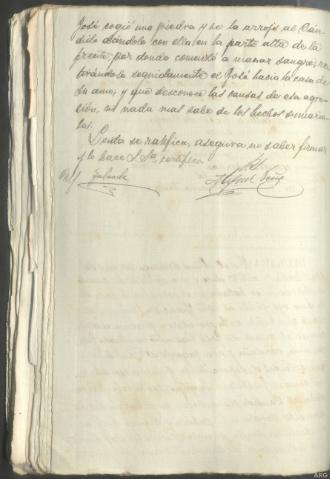 José cogió una piedra y se la arrojó al Cán-
dido dándole con ella en la parte alta de la
frente, por donde comenzó a manar sangre, re-
tirándose seguidamente el José hacia la casa de
su amo, y que desconoce las causas de esa agre-
sión, ni nada mas sabe de los hechos sumaria-
les.
Leída se ratifica, asegura no saber firmar
y lo hace S. Sª, certifico
Miguel
ARG